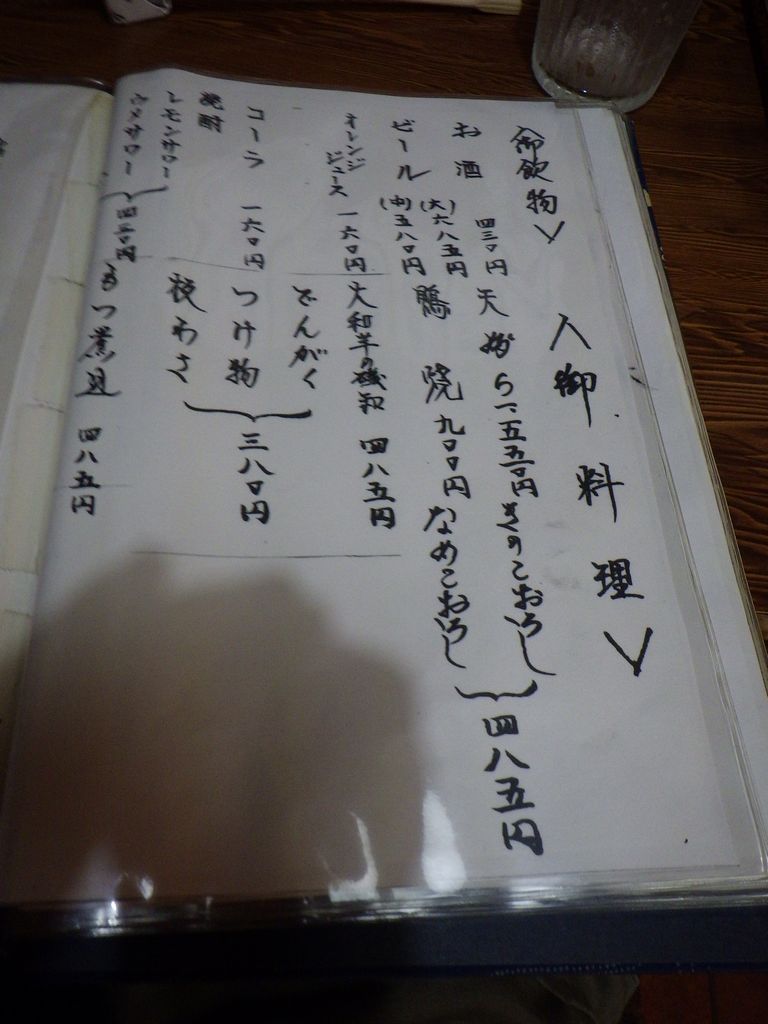 <御飲物>
お酒 四三〇円
ビール (大)六八五円
(中)五八〇円
オレンジジュース 一六〇円
コーラ 一六〇円
焼酎
レモンサワー
ウメサワー
四三〇円
<御料理>
天婦ら 一、五五〇円
鴨焼 九〇〇円
きのこおろし
なめこおろし
四八五円
大和芋の磯和 四八五円
でんがく
つけ物
板わさ
三八〇円
もつ煮込 四八五円